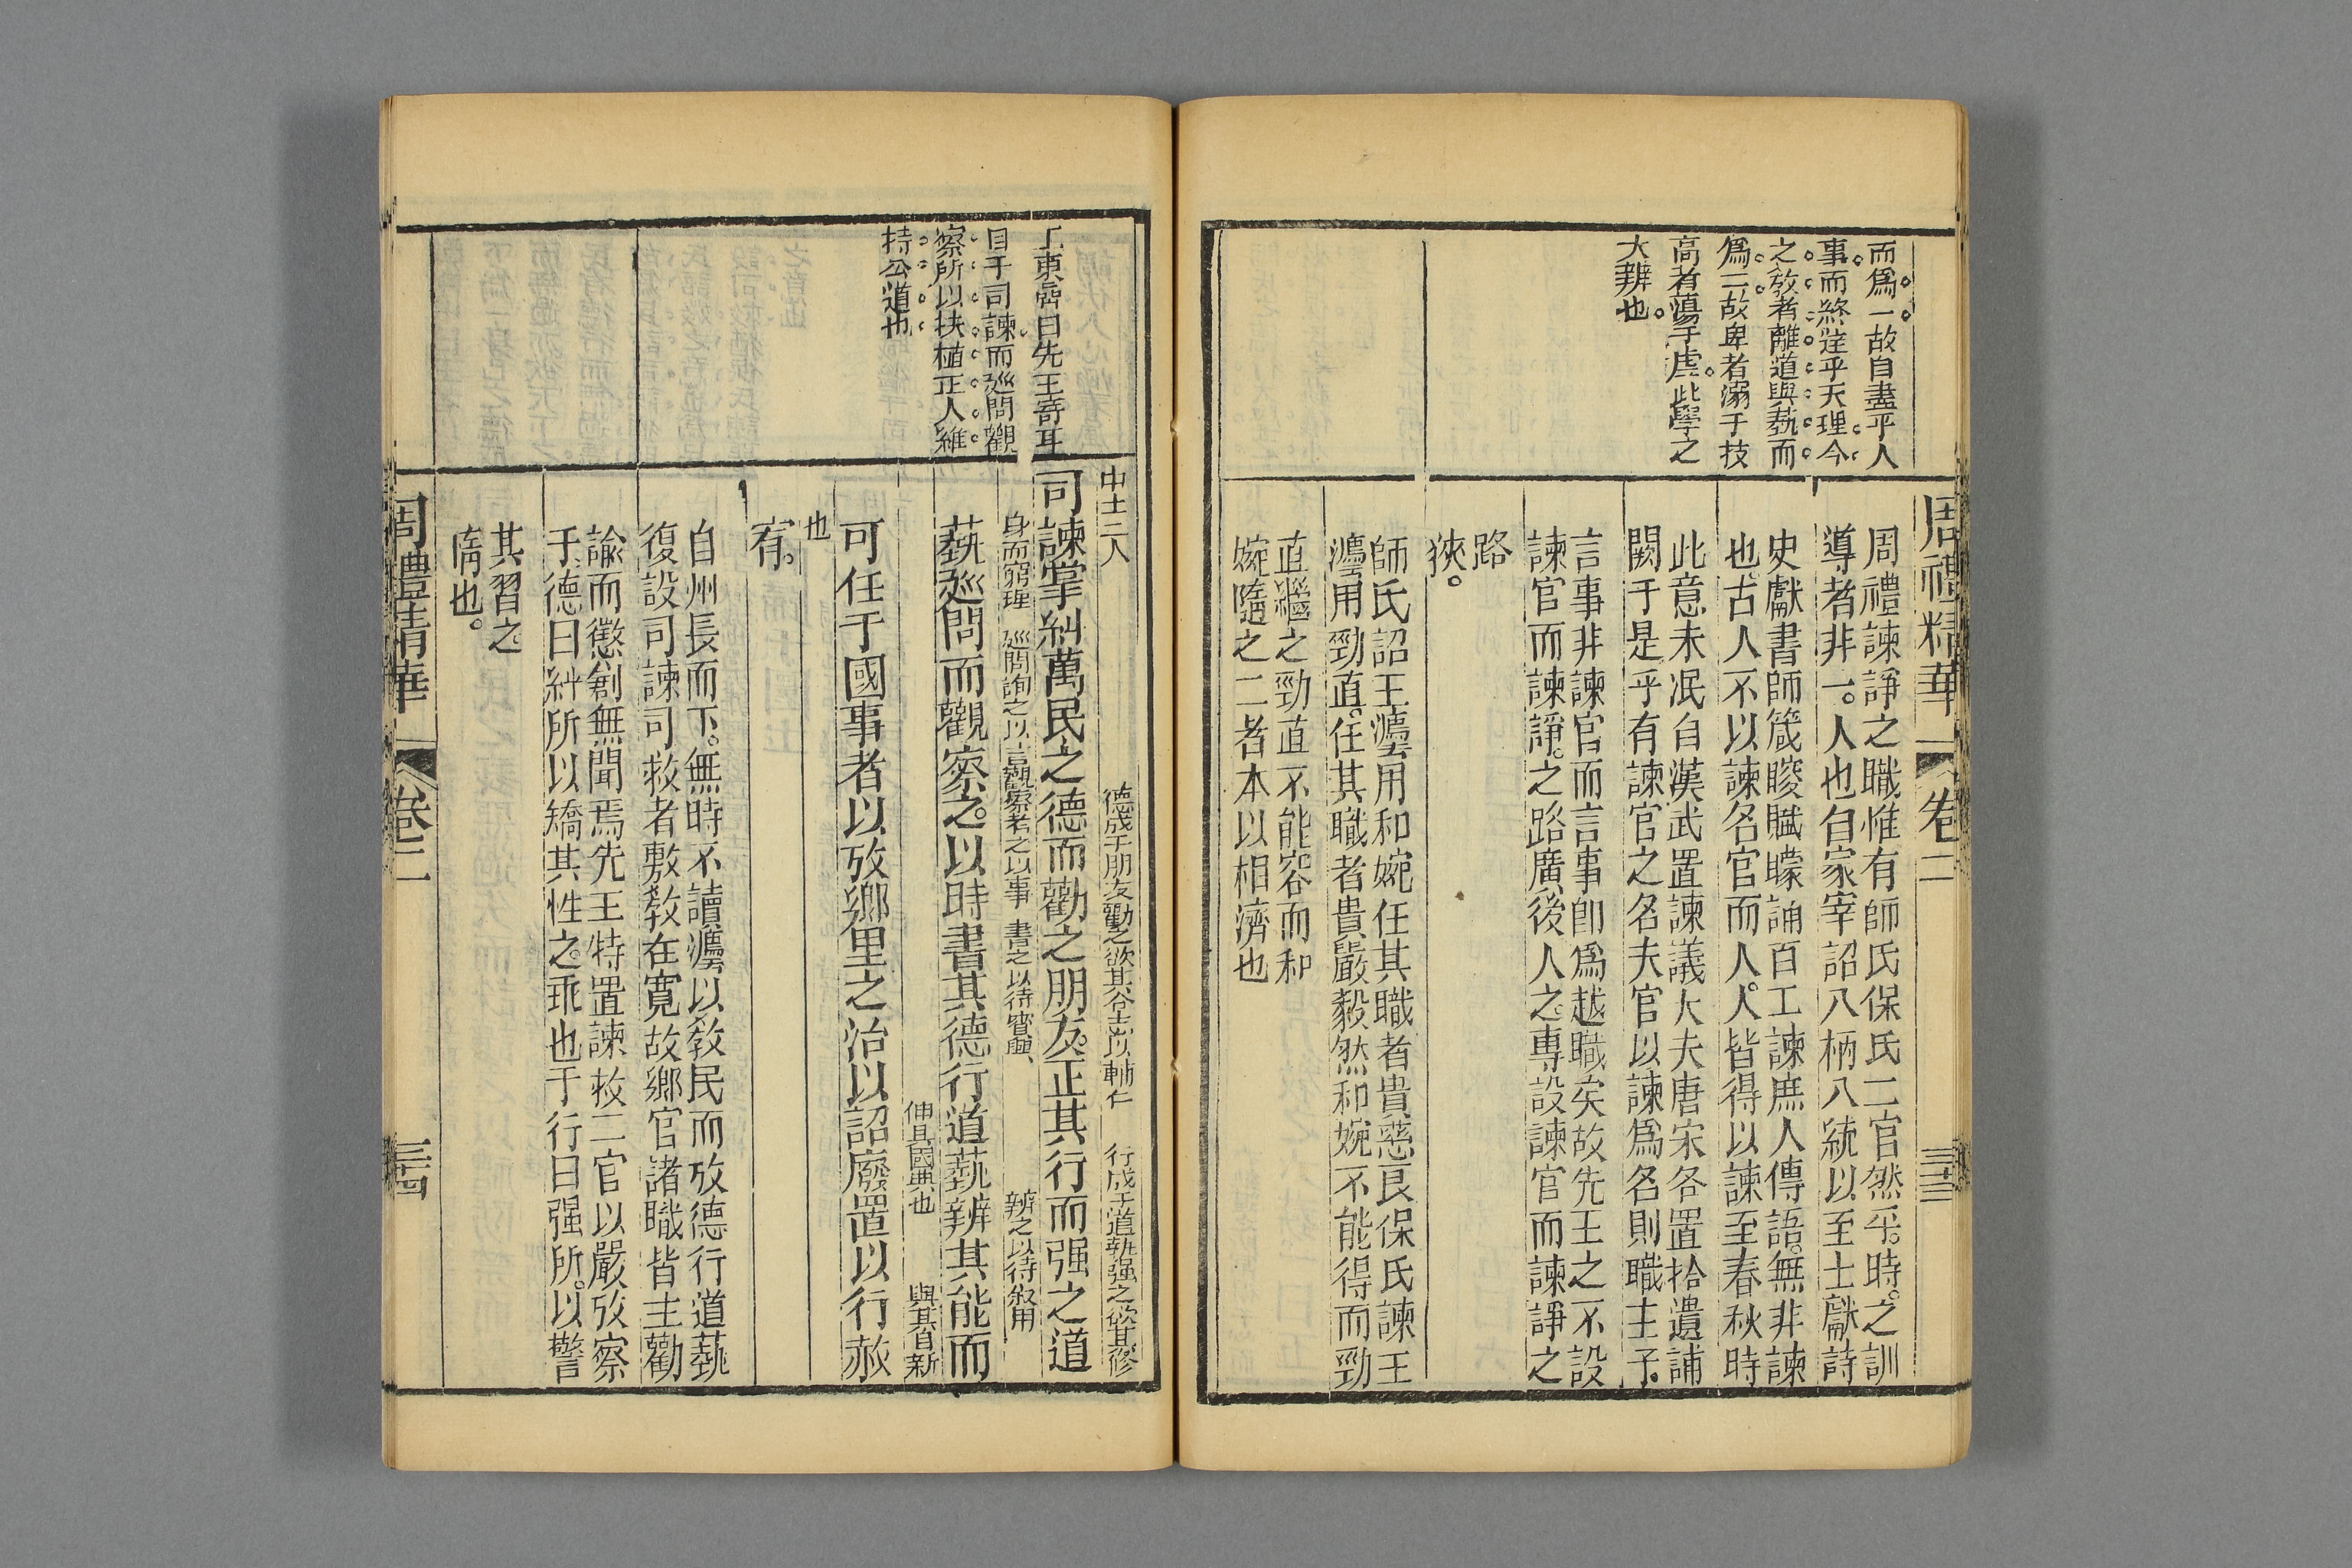 而爲一故自盡乎人
事而終達乎天理今
之教者離道與藝而
爲二故卑者溺于技
高者蕩于虛此學之
大辨也
周禮精華
卷二
三十三
周禮諫諍之職惟有師氏保氏二官然乎時之訓
導者非一人也自家宰詔八柄八統以至士獻詩
史獻書師箴瞍賦矇誦百工諫庶人傳語無非諫
也古人不以諫名官而人人皆得以諫至春秋時
此意未泯自漢武置諫議大夫唐宋各置拾遺補
闕于是乎有諫官之名夫官以諫爲名則職主予
言事非諫官而言事卽爲越職矣故先王之不設
諫官而諫諍之路廣後人之專設諫官而諫諍之
路
狹
師氏詔王灋用和婉任其職者貴慈良保氏諫王
灋用勁直任其職者貴嚴毅然和婉不能得而勁
直繼之勁直不能容而和
婉隨之二者本以相濟也
丁東嵒曰先王寄耳
目于司諫而廵問觀
察所以扶植正人維
持公道也
中士二人
德成于朋友勸之欲其合志以輔仁
行成于道藝强之欲其修
司諫掌糾萬民之德而勸之朋友正其行而强之道
身而窮理
廵問詢之以言觀察考之以事
書之以待賓興
辨之以待叙用
藝廵問而觀察之以時書其德行道藝辨其能而
伸其國典也
與其自新
可任于國事者以攷鄉里之治以詔廢置以行赦
也
宥
自州長而下無時不讀灋以教民而攷德行道藝
復設司諫司救者敷教在寬故鄉官諸職皆主勸
諭而懲創無聞焉先王特置諫救二官以嚴攷察
于德曰糾所以矯其性之乖也于行曰强所以警
其習之
惰也
周禮精華
卷二
三十四